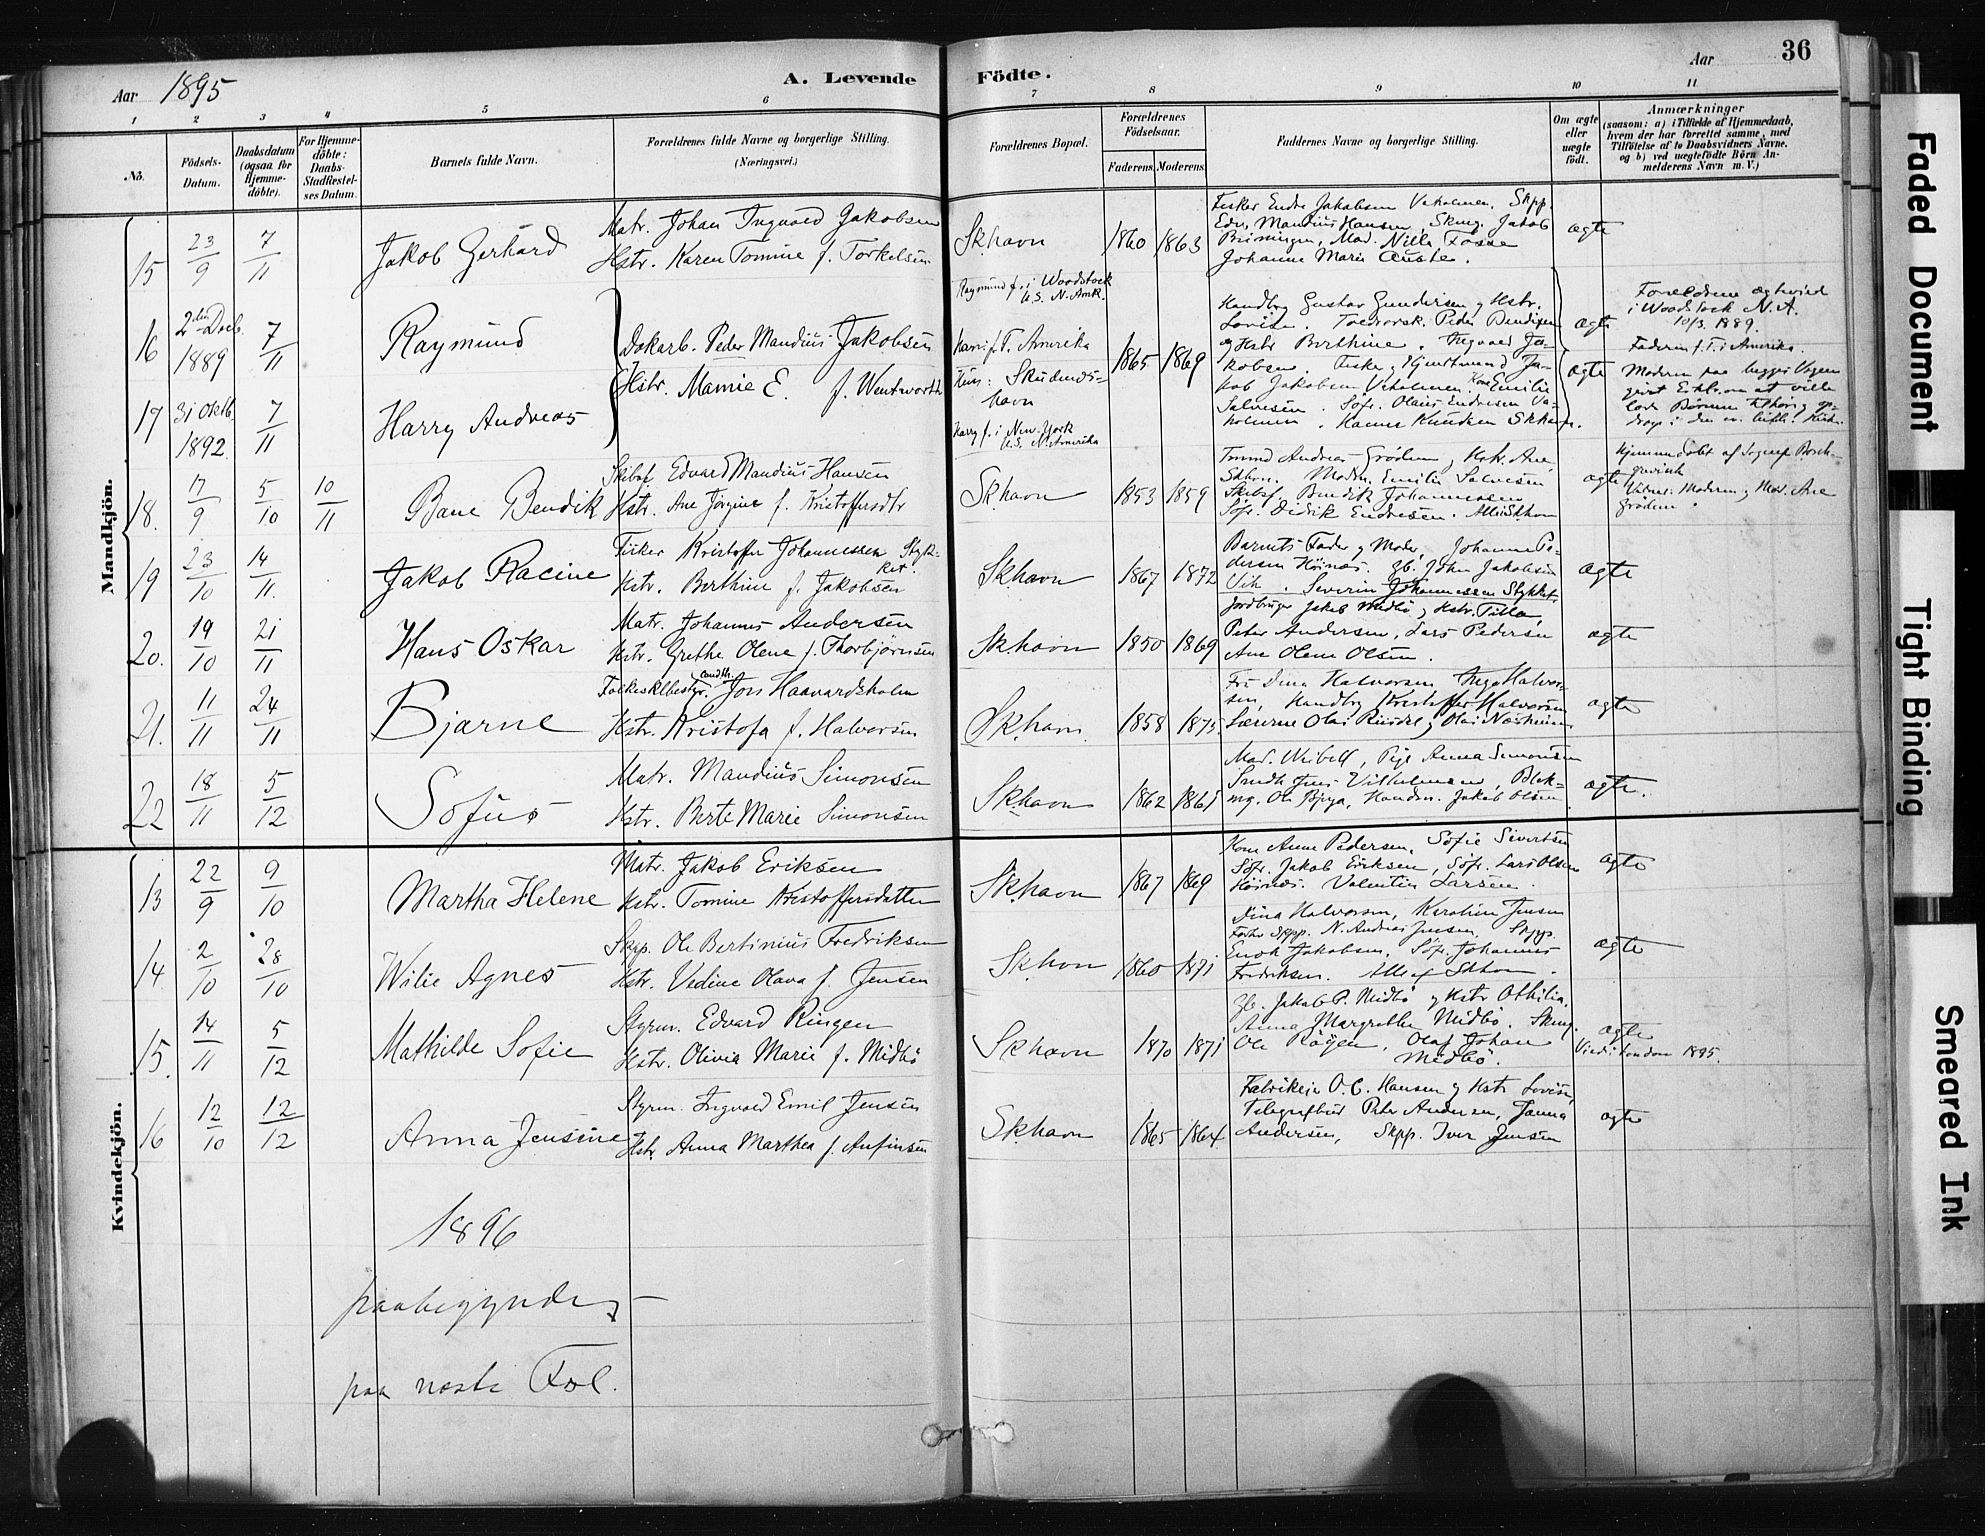 Aar 1895
A. Levende Födte.
Aar 36
1 2 3 4 5 6 7 8 9 10 11
No.
Födsels-Datum.
Daabsdatum (ogsaa for Hjemme-döbte).
For Hjemme-döbte: Daabs-Stadfæstelses Datum.
Barnets fulde Navn.
Forældrenes fulde Navne og borgerlige Stilling.
(Næringsvei.)
Forældrenes Bopæl.
Forældrenes Födselsaar.
Faderens. Moderens.
Faddernes Navne og borgerlige Stilling.
Om ægte eller uægte födt.
Anmærkninger
(saasom: a) i Tilfælde af Hjemmedaab, hvem der har forrettet samme, med Tilföielse af to Daabsvidners Navne, og b) ved uægtefödte Börn Anmelderens Navn m. V.)
Mandkjön.
15 23/9 7/11 Jakob Gerhard
Matr. Johan Ingvald Jakobsen
Hstr. Karen Tomine f. Torkelsen
Skhavn 1860 1863
Fisker Endre Jakobsen Vaholmen, Skpp.
Edv. Mandius Hansen, Skmg. Jakob
Johanne Marie
ægte
16 2den Decb. 1889 7/11 Raymund
Dokarb. Peder Mandius Jakobsen
Hstr. Mamie E. f. Wentworth
Raymund f. i Woodstock
U.S. N. Amk.
f. T. Amerika
Skudenes-
havn
Harry f. i New-York
U.S. N. Amerika
1865 1869
Handbg Gustav Gundersen og Hstr.
Lovise. Peder Bendigsen
og Hstr Berthine. Ingvald Ja-
kobsen. Fisker og Ja-
kob Jakobsen Vaholmen, Emilie
Salvesen. Söfr. Olaus Endresen Va-
holmen. Hanna Knudsen Skhavn.
ægte
Forældrene ægteviet
i Woodstock N. A.
10/3 1889.
Faderen f. T. i Amerika.
Moderen paa begges Vegne
17 31 Oktb. 1892. 7/11 Harry Andreas
ægte
18. 17/9 5/10 10/11 Bane Bendik
Skibsf. Edvard Mandius Hansen
Hstr. Ane Jörgine f. Kristoffersdtr
Skhavn 1853 1859
Andreas Gröden og Hstr. Ane
Skhvn. Madm. Emilie Salvesen
Skibsf. Bendik Johannessen
Söfr. Didrik Endresen. Alle i Skhavn
ægte
Hjemmedöbt af Sognepr. Borch-
grevink
Vidner: Moderen og Mad. Ane
Gröden.
19 23/10 14/11. Jakob Racine
Fisker Kristoffer Johannessen Styk-
ket.
Hstr. Berthine f. Jakobsen
Skhavn 1867 1872
Barnets Fader og Moder, Johanne Pe-
dersen Höines. Gb. John Jakobsen
Vik. Severin Johannessen Stykket.
ægte
20. 19/10 21/11 Hans Oskar
Matr. Johannes Andersen
Hstr. Grethe Olene f. Thorbjörnsen
Skhavn 1850 1869
Jordbruger Jakob Midbö og Hstr. Tilla,
Peter Andersen, Lars Pedersen
Ane Olene Olsen.
ægte
21. 11/11 24/11 Bjarne
Folkesklbestyr. candth. Jon Haavardsholm
Hstr. Kristofa f. Halvorsen
Skhavn 1858 1875
Frk Dina Halvorsen, Inga Halvor-
sen, Handbg Kristoffer Halvorsen
Lærerne Olai Riisdal og Olai Næsheim
ægte
22 18/11 5/12 Sofus
Matr. Mandius Simonsen
Hstr. Berte Marie Simonsen
Skhavn 1862 1865
Mad. Weibell, Pige Anna Simonsen
Smdk Jens Vilhelmsen, Blok-
mg. Ole Bjerga, Handsr. Jakob Olsen
ægte.
Kvindekjön.
13 22/9 9/10 Martha Helene
Matr. Jakob Eriksen
Hstr. Tomine Kristoffersdatter
Skhavn 1867 1869
Kone Anne Pedersen, Sofie Sivertsen
Söfr. Jakob Eriksen, Söfr. Lars Olsen
Höines. Valentin Larsen.
ægte
14. 2/10 28/10 Wilie Agnes
Skpp. Ole Bertinius Fredriksen
Hstr. Vedine Olava f. Jensen
Skhvn 1860 1871
Dina Halvorsen, Karoline Jensen
Skpp. N. Andreas Jensen. Skpp.
Enok Jakobsen, Söfr. Johannes
Fredriksen. Alle af Skhavn.
ægte
15. 14/11 5/12 Mathilde Sofie
Styrm. Edvard Ringen
Hstr. Olivia Marie f. Midbö
Skhavn 1870 1871
Gb. Jakob P. Midbö og Hstr Othilia.
Anna Margrethe Midbö. Skmg.
Ole Olaf Johan
Midbö.
ægte
Viet i London 1895.
16 12/10 12/12 Anna Jensine
Styrm. Ingvald Emil Jensen
Hstr. Anna Marthea f. Anfinsen
Skhavn 1865 1864
Fabrikeier O. C. Hansen og Hstr Lovise,
Telegrafbud Peter Andersen, Janna
Andersen, Skpp. Iver Jensen
ægte
1896
paabegyndes
paa neste Fol.
Faded Document
Tight Binding
Smeared Ink